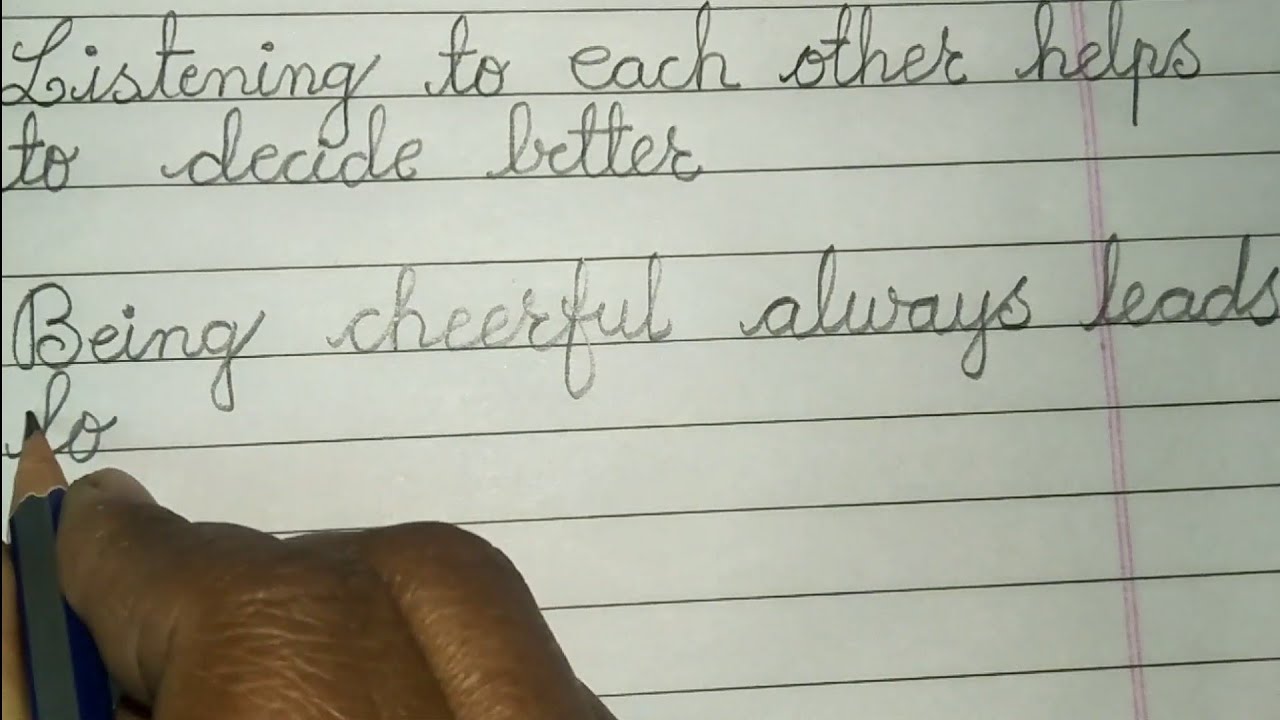 Listening to each other helps
to decide better
Being cheerful always leads
to